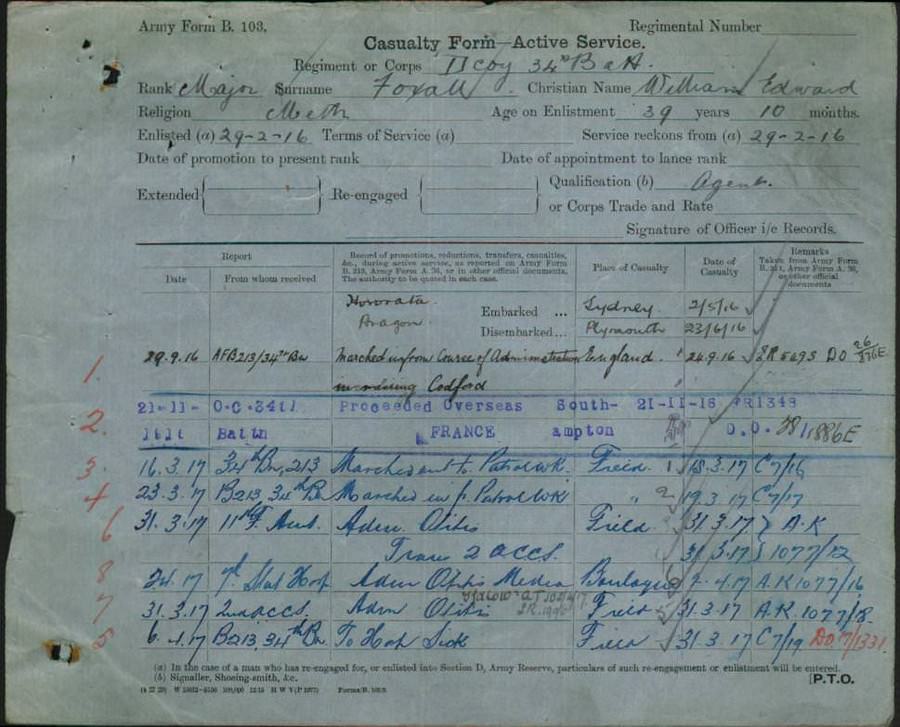 Army Form B. 103.
Regimental Number
Casualty Form—Active Service.
Regiment or Corps D Coy 34th Batt.
Rank Major Surname Foxall Christian Name William Edward
Religion Meth Age on Enlistment 39 years 10 months.
Enlisted (a) 29-2-16 Terms of Service (a) Service reckons from (a) 29-2-16
Date of promotion to present rank Date of appointment to lance rank
Extended Re-engaged Qualification (b) Agent.
or Corps Trade and Rate
Signature of Officer i/c Records.
Report Record of promotions, reductions, transfers, casualties, &c., during active service, as reported on Army Form B. 213, Army Form A. 36, or in other official documents. The authority to be quoted in each case. Place of Casualty Date of Casualty Remarks Taken from Army Form B. 213, Army Form A. 36, or other official documents
Date From whom received
Hororata Embarked ... Sydney 2/5/16
Aragon Disembarked ... Plymouth 23/6/16
1. 29.9.16 AFB213/34th Bn Marched in from Course of Administration England. 24.9.16 DO 26/876E
Codford
2. 21-11- O.C. 34th Proceeded Overseas South- 21-11-16 1348
Battn FRANCE ampton D.O. 38/1886E
3. 16.3.17 34th Bn, 213 Marched out to Patrol Wk. Field 17 C7/16
4 23.3.17 B213 34th Bn Marched in f. Patrol Wk " 19 3 17 C7/17
6 31.3.17 11th F. Amb. Adm Otitis Field 31.3.17 A.K
Trans 2 ACCS. 31.3.17 1077/12
8 2.4.17 7th Stat Hosp Adm Otitis Media Boulogne 2.4.17 A.K 1077/16
7 31.3.17 2nd ACCS. Adm Otitis Field 31.3.17 A.K. 1077/18
5 6.4.17 B213, 34th Bn To Hosp Sick Field 31.3.17 C7/19 DO.7/1331
(a) In the case of a man who has re-engaged for, or enlisted into Section D, Army Reserve, particulars of such re-engagement or enlistment will be entered.
(b) Signaller, Shoeing-smith, &c.
[P.T.O.